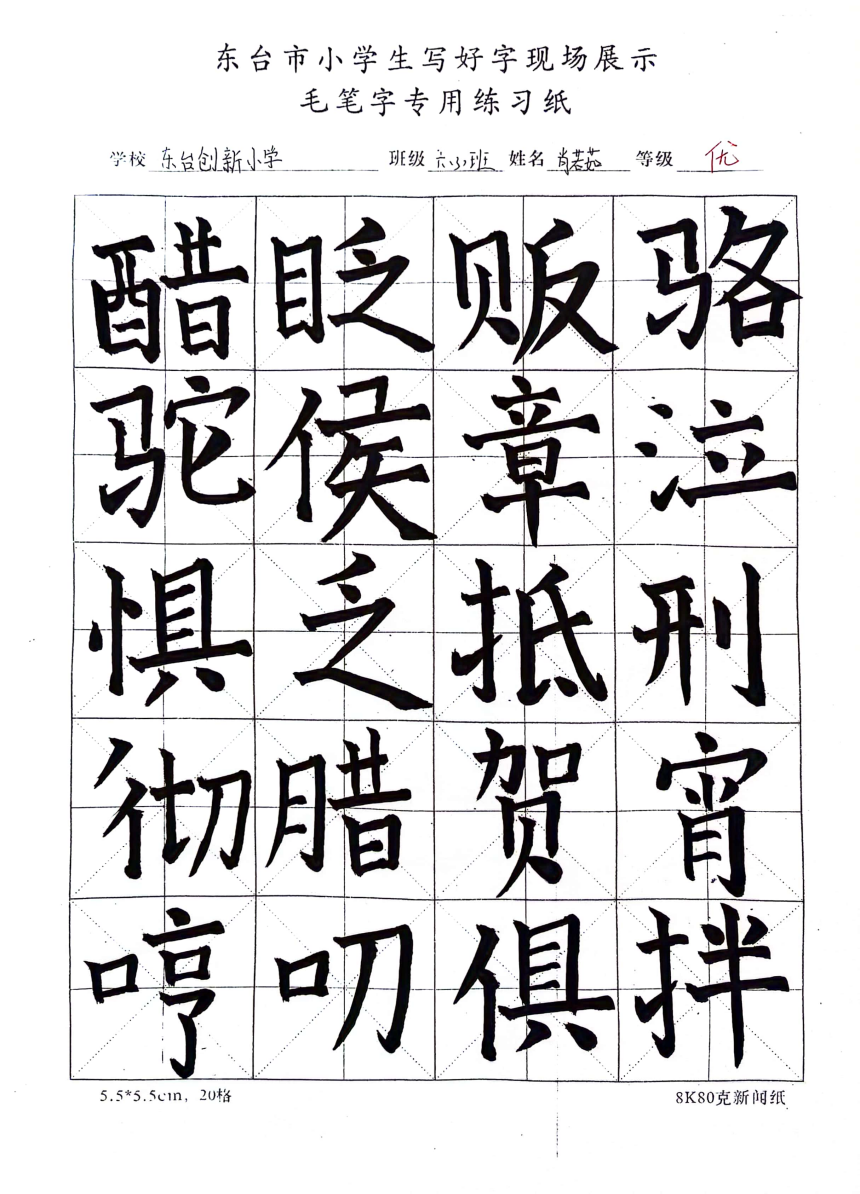 东台市小学生写好字现场展示
毛笔字专用练习纸
学校 东台创新小学 班级 六(3)班 姓名 肖若茹 等级 优
醋眨贩骆
驼侯章泣
惧乏抵刑
彻腊贺宵
哼叨俱拌
5.5*5.5cm，20格 8K80克新闻纸